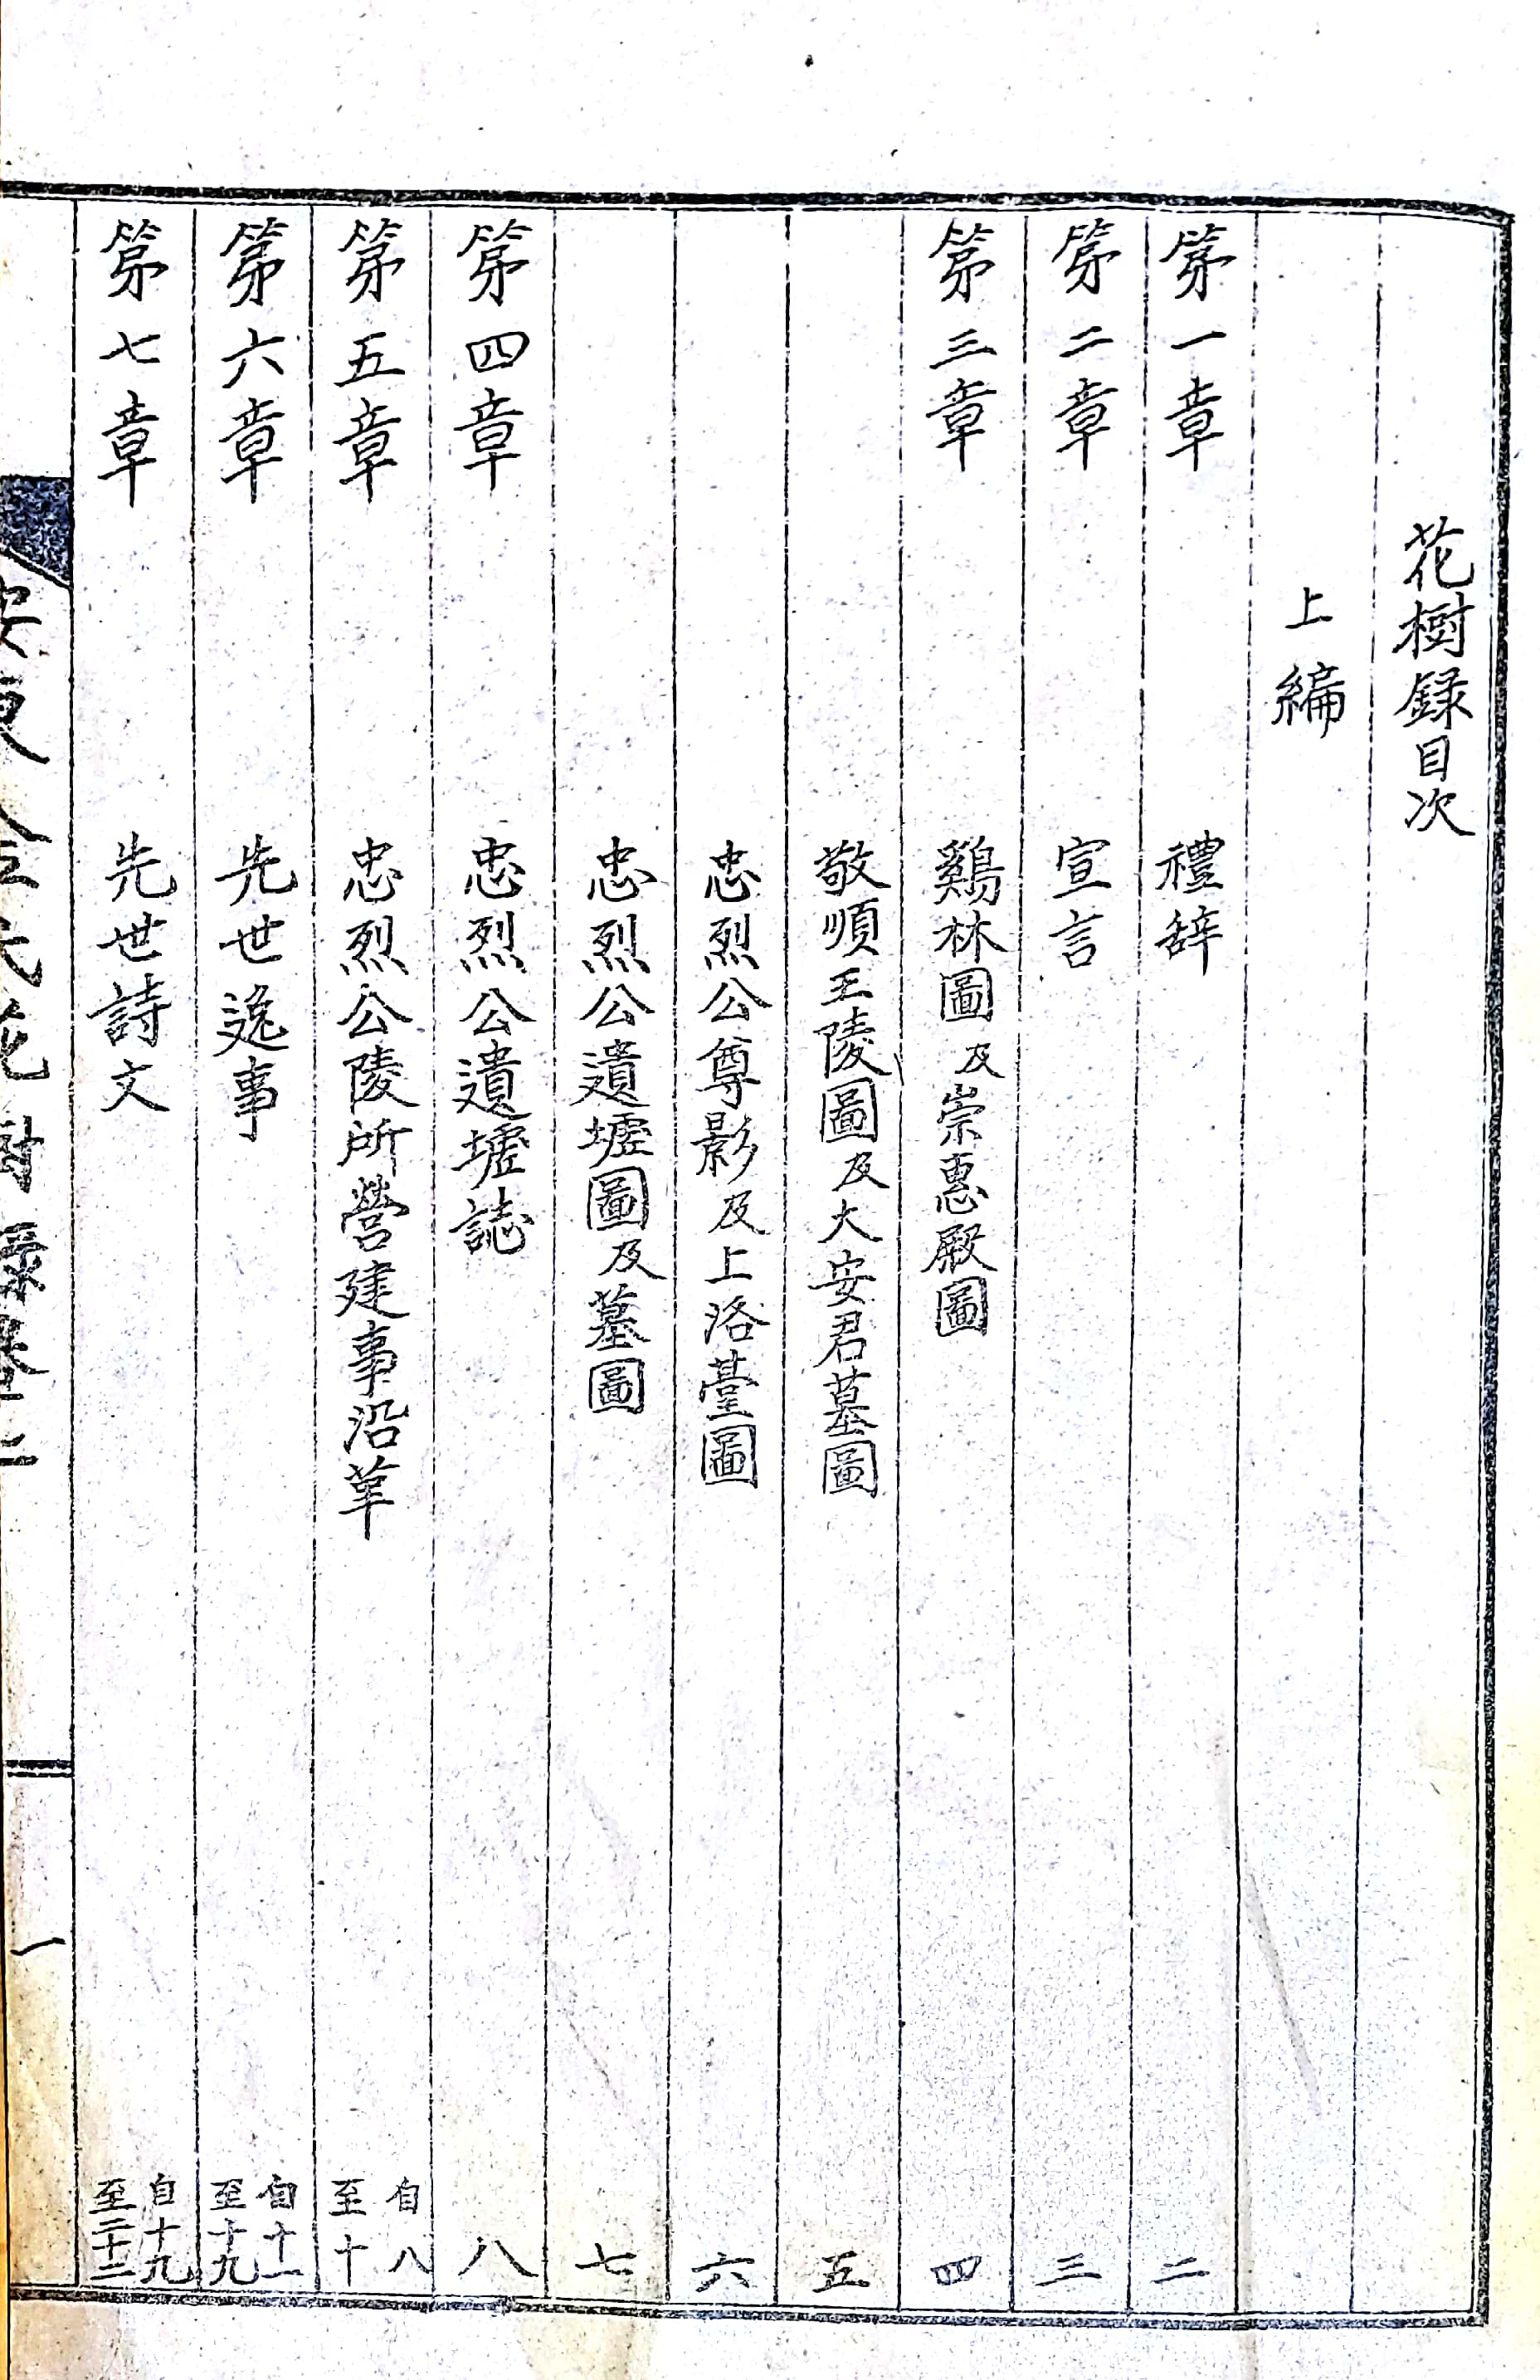 花樹録目次
上編
第一章 禮辞 二
第二章 宣言 三
第三章 鷄林圖及崇惠殿圖 四
敬順王陵圖及大安君墓圖 五
忠烈公尊影及上洛臺圖 六
忠烈公遺墟圖及墓圖 七
第四章 忠烈公遺墟誌 八
第五章 忠烈公陵所營建事沿革 自八至十
第六章 先世逸事 自十一至十九
第七章 先世詩文 自十九至二十二
安東金氏花樹録卷之二
一